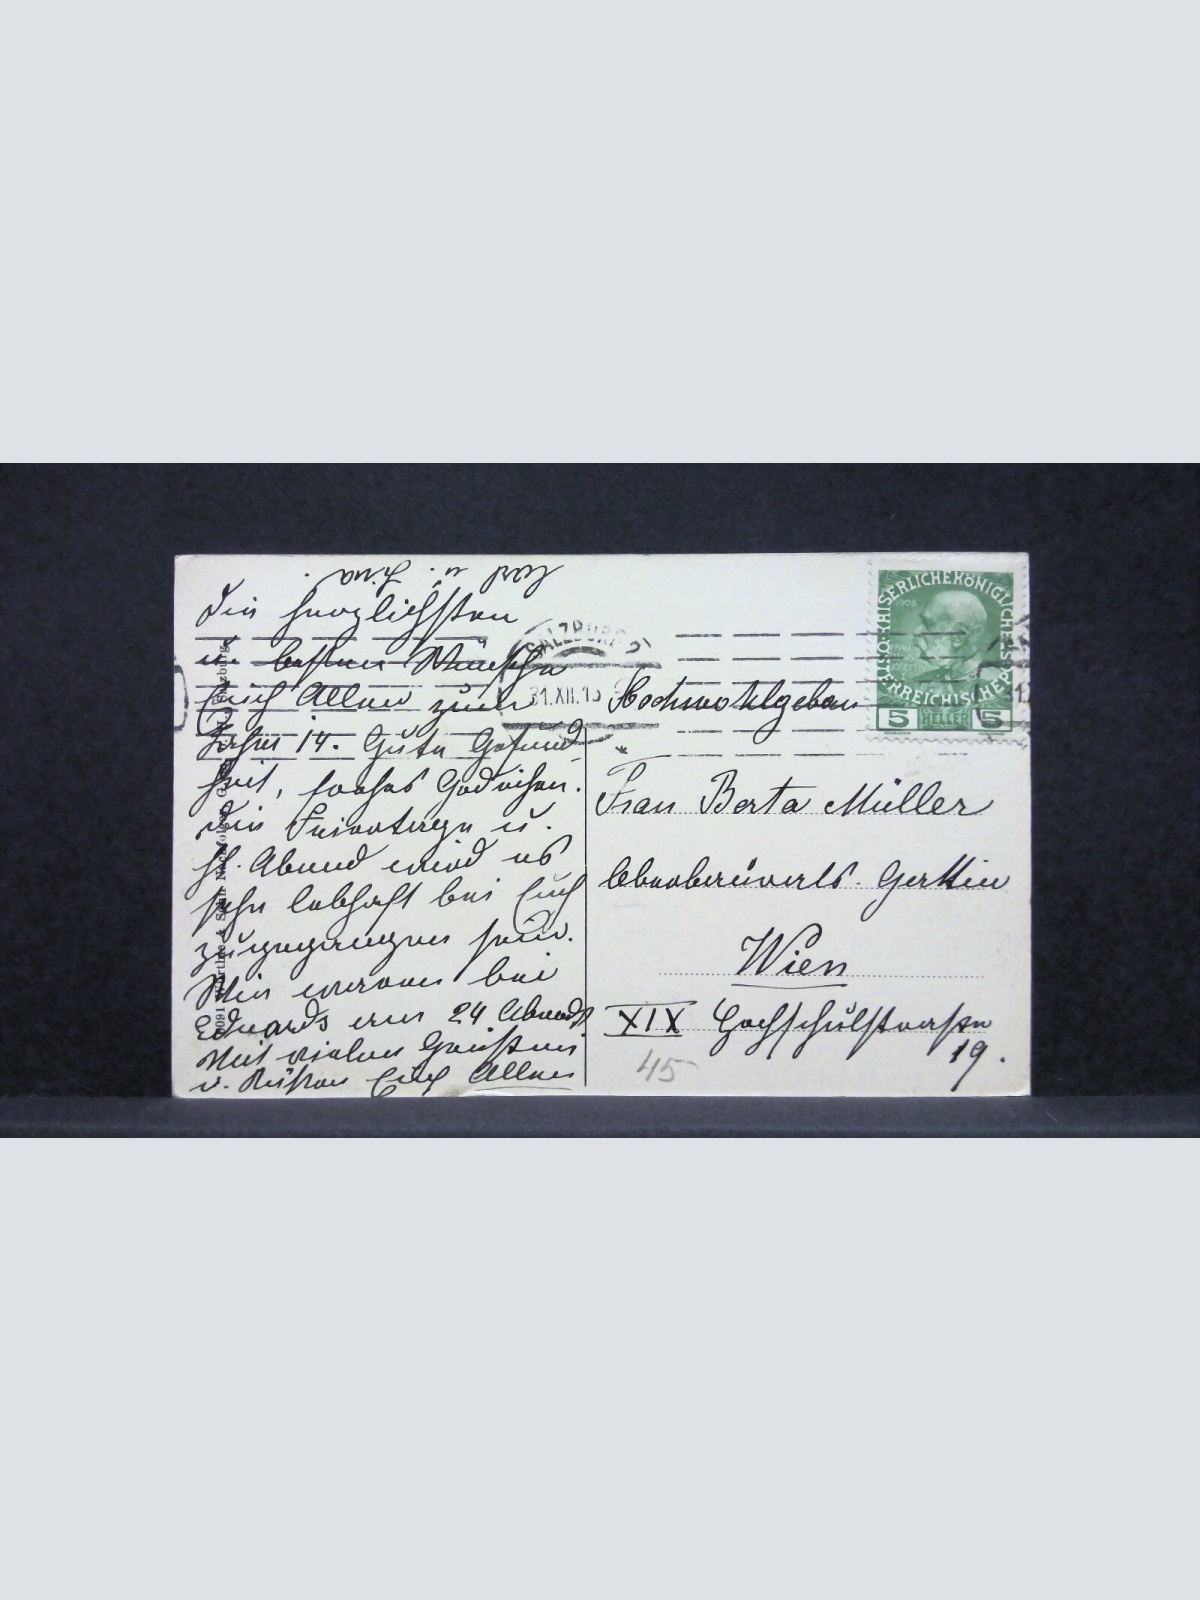 Karl u. Lina.
Die herzlichsten
u. besten Wünsche
Euch Allen zum
Jahre 14. Gute Gesund-
heit, frohes Gedeihen.
Die Feiertage u.
hl. Abend wird es
sehr lebhaft bei Euch
zugegangen sein.
Wir waren bei
Eduards am 24 Abends
Mit vielen Grüßen
u. Küssen Euch Allen
SALZBURG
31.XII.13
ÖSTERREICHISCHE POST
KAISERLICHEKÖNIGLICHE
1908
5 HELLER 5
Hochwohlgeboren
Frau Berta Müller
Gattin
Wien
XIX Hochschulstrasse
19.
45
Würthle & Sohn Nachfolger Salzburg